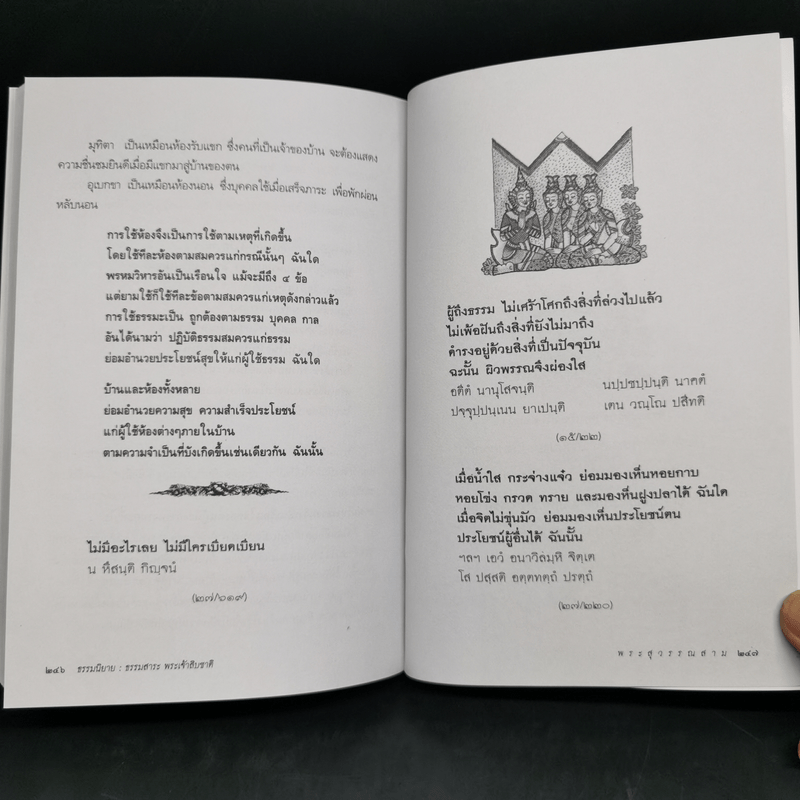 มุทิตา เป็นเหมือนห้องรับแขก ซึ่งคนที่เป็นเจ้าของบ้าน จะต้องแสดง
ความชื่นชมยินดีเมื่อมีแขกมาสู่บ้านของตน
อุเบกขา เป็นเหมือนห้องนอน ซึ่งบุคคลใช้เมื่อเสร็จภาระ เพื่อพักผ่อน
หลับนอน
การใช้ห้องจึงเป็นการใช้ตามเหตุที่เกิดขึ้น
โดยใช้ทีละห้องตามสมควรแก่กรณีนั้นๆ ฉันใด
พรหมวิหารอันเป็นเรือนใจ แม้จะมีถึง ๔ ข้อ
แต่ยามใช้ก็ใช้ทีละข้อตามสมควรแก่เหตุดังกล่าวแล้ว
การใช้ธรรมะเป็น ถูกต้องตามธรรม บุคคล กาล
อันได้นามว่า ปฏิบัติธรรมสมควรแก่ธรรม
ย่อมอำนวยประโยชน์สุขให้แก่ผู้ใช้ธรรม ฉันใด
บ้านและห้องทั้งหลาย
ย่อมอำนวยความสุข ความสำเร็จประโยชน์
แก่ผู้ใช้ห้องต่างๆภายในบ้าน
ตามความจำเป็นที่บังเกิดขึ้นเช่นเดียวกัน ฉันนั้น
ไม่มีอะไรเลย ไม่มีใครเบียดเบียน
น หึสนฺติ กิญฺจนํ
๒๔๖ ธรรมนิยาย : ธรรมสาระ พระเจ้าสิบชาติ
ผู้ถึงธรรม ไม่เศร้าโศกถึงสิ่งที่ล่วงไปแล้ว
ไม่เพ้อฝันถึงสิ่งที่ยังไม่มาถึง
ดำรงอยู่ด้วยสิ่งที่เป็นปัจจุบัน
ฉะนั้น ผิวพรรณจึงผ่องใส
อตีตํ นานุโสจนฺติ นปฺปชปฺปนฺติ นาคตํ
ปจฺจุปฺปนฺเนน ยาเปนฺติ เตน วณฺโณ ปสีทติ
(๑๕/๒๒)
เมื่อน้ำใส กระจ่างแจ๋ว ย่อมมองเห็นหอยกาบ
หอยโข่ง กรวด ทราย และมองหึ่นฝูงปลาได้ ฉันใด
เมื่อจิตไม่ขุ่นมัว ย่อมมองเห็นประโยชน์ตน
ประโยชน์ผู้อื่นได้ ฉันนั้น
ฯลฯ เอวํ อนาวิลมฺหิ จิตฺเต
โส ปสฺสติ อตฺตทตฺถํ ปรตฺถํ
(๒๗/๒๒๐)
พระสุวรรณสาม ๒๔๗